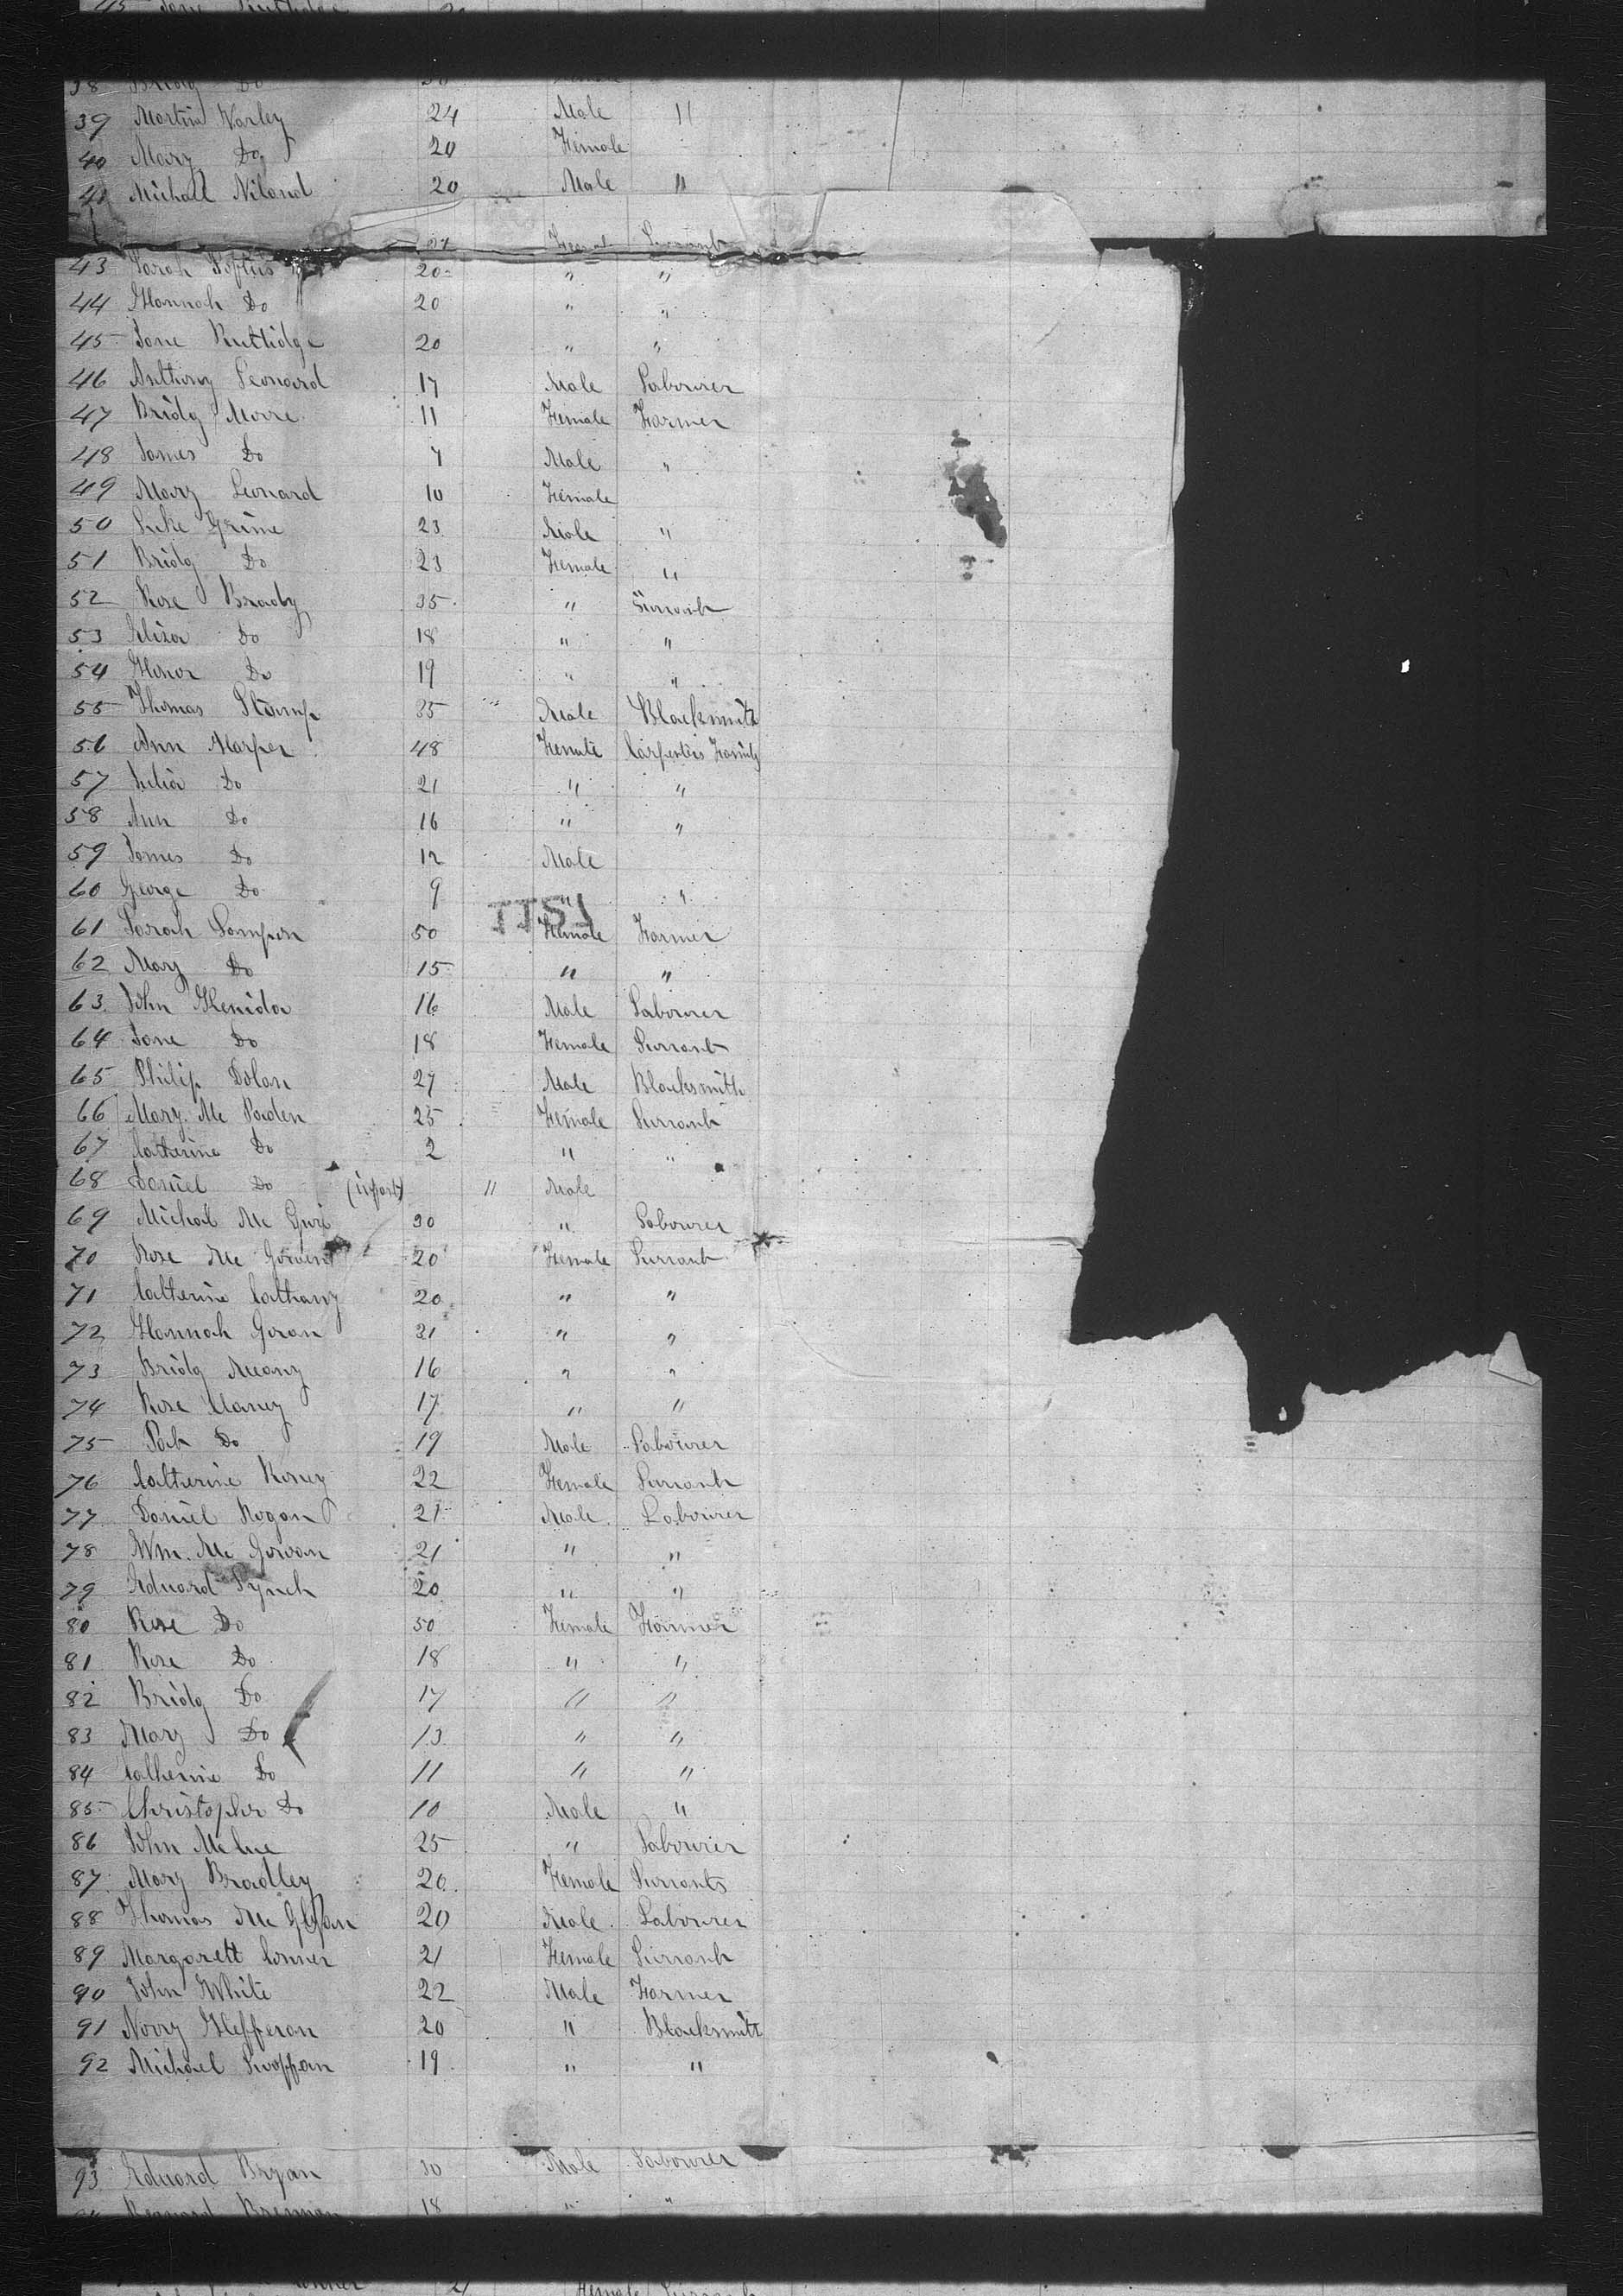 45 Jane Rutlidge 20
38 Bridg Do 20 Female
39 Martin Varley 24 Male "
40 Mary Do 20 Female
41 Michall Niland 20 Male "
Servant
43 Sarah Loftus 20 " "
44 Hannah Do 20 " "
45 Jane Rutlidge 20 " "
46 Anthony Leonard 17 Male Labourer
47 Bridg Moore 11 Female Farmer
48 James Do 7 Male "
49 Mary Leonard 10 Female
50 Luke Grime 23 Male "
51 Bridg Do 23 Female "
52 Rose Brady 35 " Survant
53 Eliza Do 18 " "
54 Honor Do 19 " "
55 Thomas Stamp 35 Male Blacksmith
56 Ann Harper 48 Female Carpenters Family
57 Julia Do 21 " "
58 Ann Do 16 " "
59 James Do 12 Male
60 George Do 9 " "
61 Sarah Sampson 50 Female Farmer
62 Mary Do 15 " "
63 John Henidor 16 Male Labourer
64 Jane Do 18 Female Survant
65 Philip Dolan 27 Male Blacksmith
66 Mary Mc Paden 25 Female Survant
67 Catherine Do 2 " "
68 Daniel Do (infant) " Male
69 Michal Mc Guri 20 " Labourer
70 Rose Mc Goven 20 Female Survant
71 Catherine Cathany 20 " "
72 Hannah Goran 21 " "
73 Bridg Meany 16 " "
74 Rose Claney 17 " "
75 Pat Do 19 Male Labourer
76 Catherine Roney 22 Female Survant
77 Daniel Rogan 21 Male Labourer
78 Wm. Mc Govan 21 " "
79 Edward Lynch 20 " "
80 Rose Do 50 Female Farmer
81 Rose Do 18 " "
82 Bridg Do 17 " "
83 Mary Do 13 " "
84 Catherine Do 11 " "
85 Christopher Do 10 Male "
86 John McCue 25 " Labourer
87 Mary Bradley 20 Female Survants
88 Thomas Mc 20 Male Labourer
89 Margarett Conner 21 Female Survant
90 John White 22 Male Farmer
91 Norry Hefferan 20 " Blacksmith
92 Michael 19 " "
93 Edward Bryan 30 Male Labourer
Bernard Brennan 18 " "
Conner 21 Female Survant